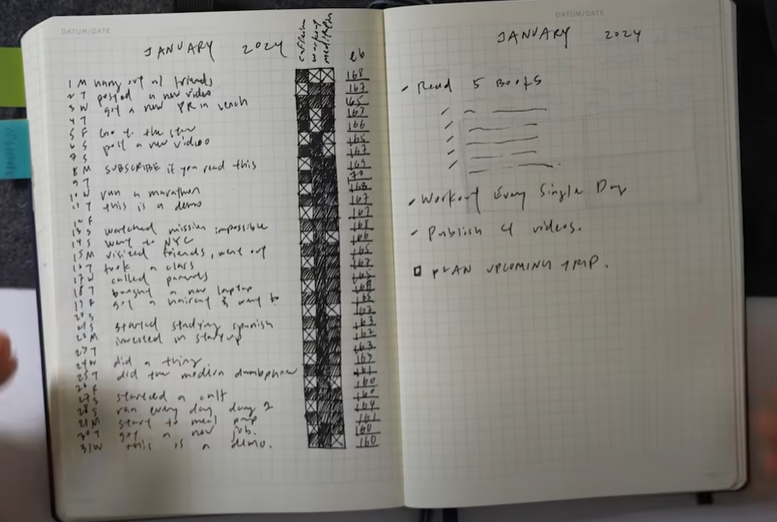 DATUM/DATE
JANUARY 2024
caffeine
workout
meditation
lb
1 M hang out w/ friends 168
2 T posted a new video 167
3 W got a new PR in bench 165
4 T 167
5 F 166
6 S post a new video 165
7 S 167
8 M SUBSCRIBE if you read this 169
9 T
10 W ran a marathon 168
11 T this is a demo 167
12 F 167
13 S watched mission impossible 168
14 S went to NYC
15 M visited friends, went out 165
16 T took a class 167
17 W called parents 165
18 T bought a new laptop
19 F got a haircut & went to 165
20 S
21 S started studying spanish 163
22 M invested in startup 162
23 T 163
24 W did a thing. 162
25 T did the modern dumbphone 161
26 F 160
27 S started a cult 160
28 S ran every day, day 2 164
29 M start to meal prep 161
30 T got a new job. 160
31 W this is a demo. 160
DATUM/DATE
JANUARY 2024
Read 5 Books
Workout Every Single Day
Publish 4 videos.
PLAN UPCOMING TRIP.